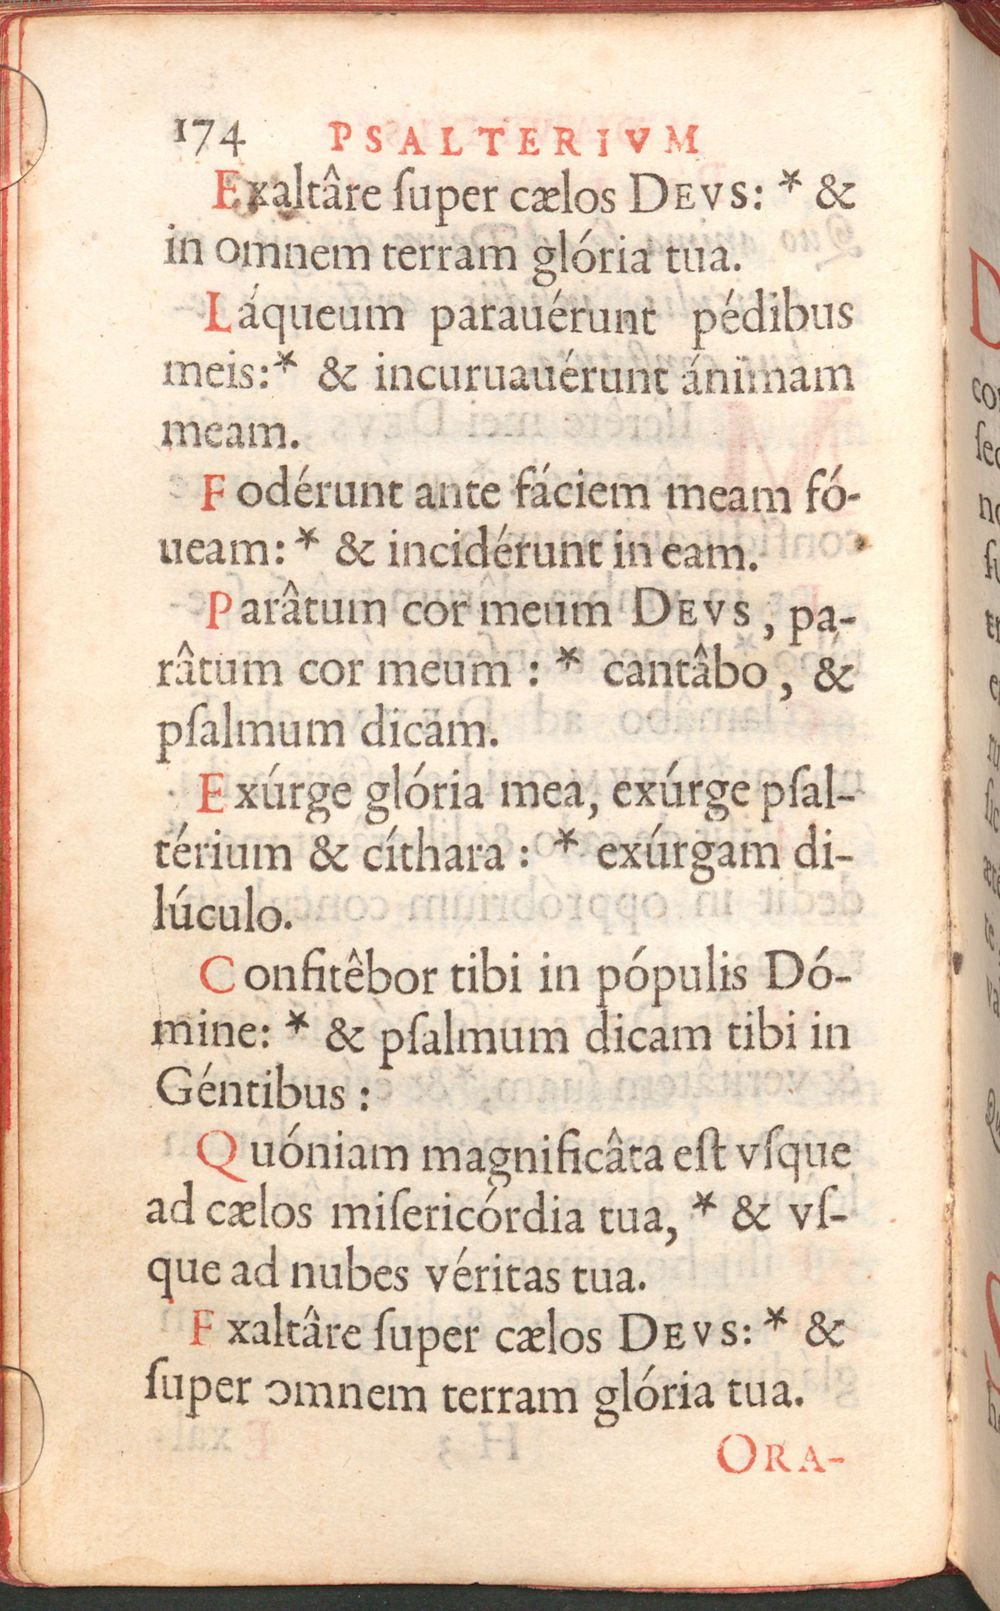 174 PSALTERIVM
Exaltâre ſuper cælos DEVS: * &
in omnem terram glória tua.
Láqueum parauérunt pédibus
meis:* & incuruauérunt ánimam
meam.
Fodérunt ante fáciem meam fó-
ueam: * & incidérunt in eam.
Parâtum cor meum DEVS, pa-
râtum cor meum : * cantâbo, &
pſalmum dicam.
Exúrge glória mea, exúrge pſal-
térium & cíthara : * exúrgam di-
lúculo.
Confitêbor tibi in pópulis Dó-
mine: * & pſalmum dicam tibi in
Géntibus :
Quóniam magnificâta eſt vſque
ad cælos miſericórdia tua, * & vſ-
que ad nubes véritas tua.
Exaltâre ſuper cælos DEVS: * &
ſuper omnem terram glória tua.
ORA-